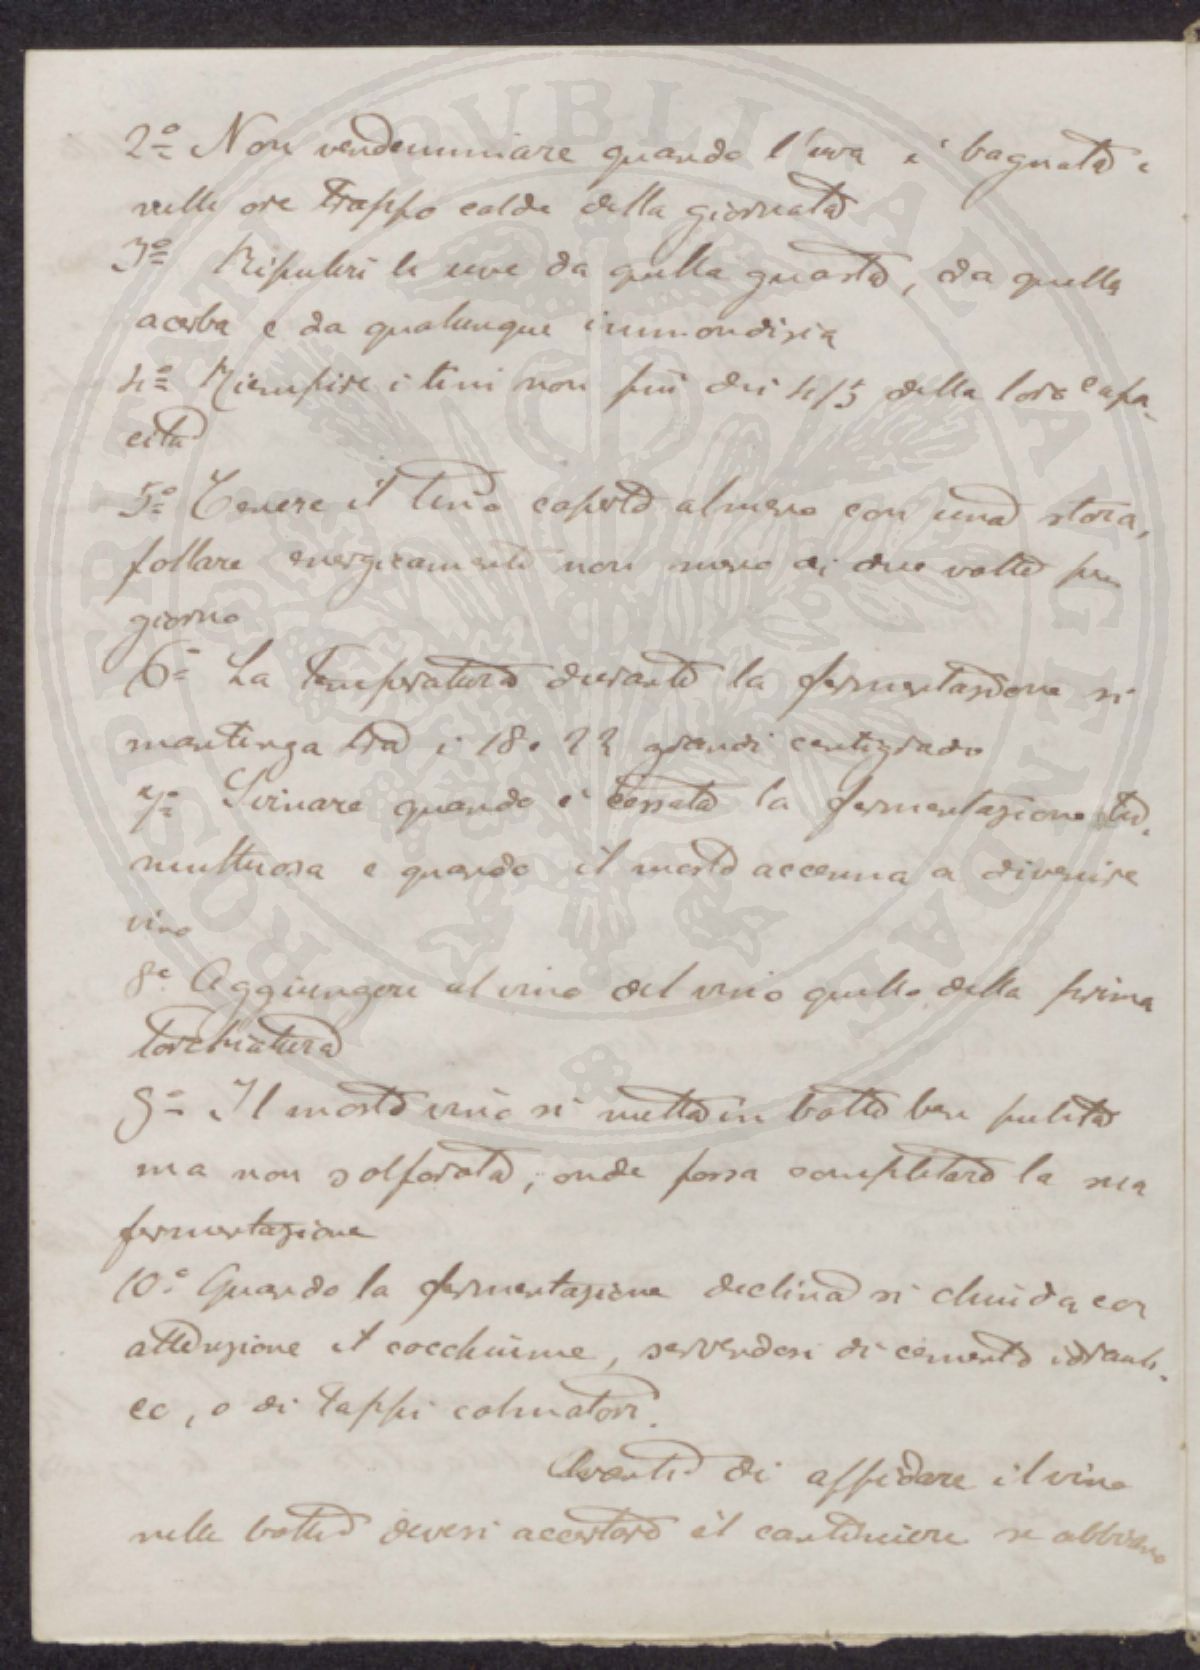 2º Non vendemmiare quando l'uva è bagnata e
nelle ore troppo calde della giornata
3º Ripulire le uve da quella guasta, da quella
acerba e da qualunque immondizia
4º Riempire i tini non più dei 4/5 della loro capa-
cità
5º Tenere il tino coperto almeno con una stoia,
follare energicamente non meno di due volte per
giorno
6º La temperatura durante la fermentazione si
mantenga tra i 18 e 22 grandi centigrado
7º Svinare quando è cessata la fermentazione tu-
multuosa e quando il mosto accenna a divenire
vino
8º Aggiungere al vino del vino quello della prima
torchiatura
9º Il mosto vino si metta in botte ben pulita
ma non solforata, onde possa completare la sua
fermentazione
10º Quando la fermentazione declina si chiuda con
attenzione il cocchiume, servendosi di cemento idrauli-
co, o di tappi colmatori.
Avanti di affidare il vino
nelle botti devesi accertare il cantiniere se abbiano
PROSPERITATI PUBLICAE AUGENDAE